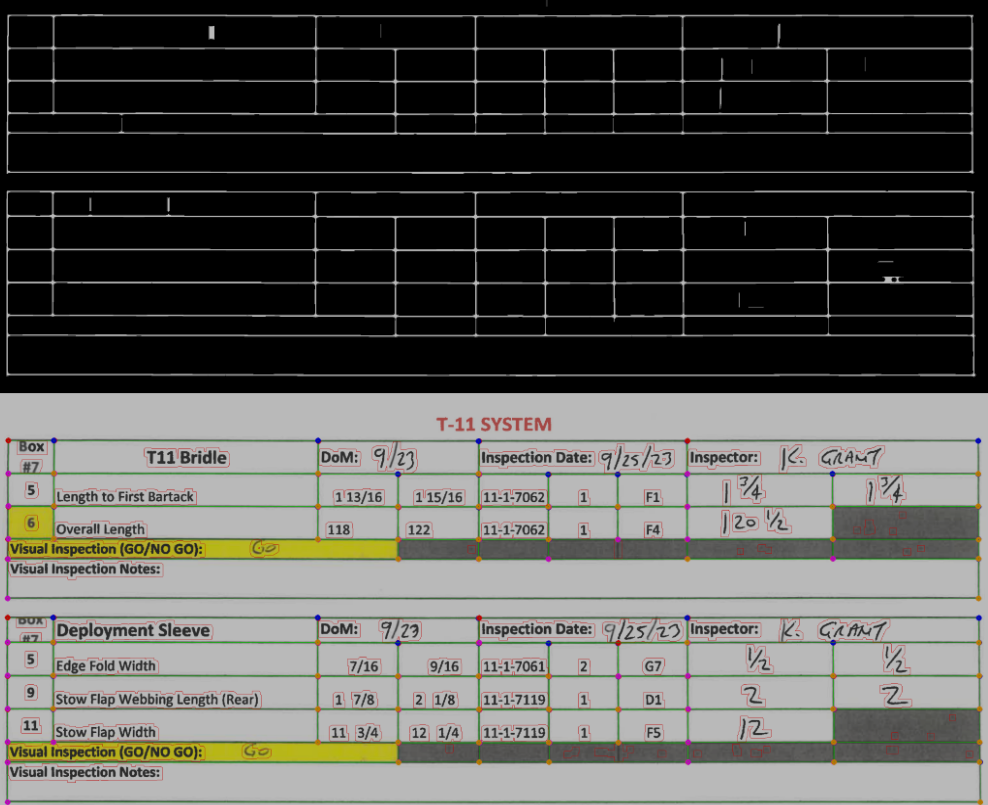 T-11 SYSTEM
Box #7 T11 Bridle DoM: 9/23 Inspection Date: 9/25/23 Inspector: K. GRANT
5 Length to First Bartack 1 13/16 1 15/16 11-1-7062 1 F1 1 3/4 1 3/4
6 Overall Length 118 122 11-1-7062 1 F4 120 1/2
Visual Inspection (GO/NO GO): Go
Visual Inspection Notes:
Box #7 Deployment Sleeve DoM: 9/23 Inspection Date: 9/25/23 Inspector: K. GRANT
5 Edge Fold Width 7/16 9/16 11-1-7061 2 G7 1/2 1/2
9 Stow Flap Webbing Length (Rear) 1 7/8 2 1/8 11-1-7119 1 D1 2 2
11 Stow Flap Width 11 3/4 12 1/4 11-1-7119 1 F5 12
Visual Inspection (GO/NO GO): Go
Visual Inspection Notes: